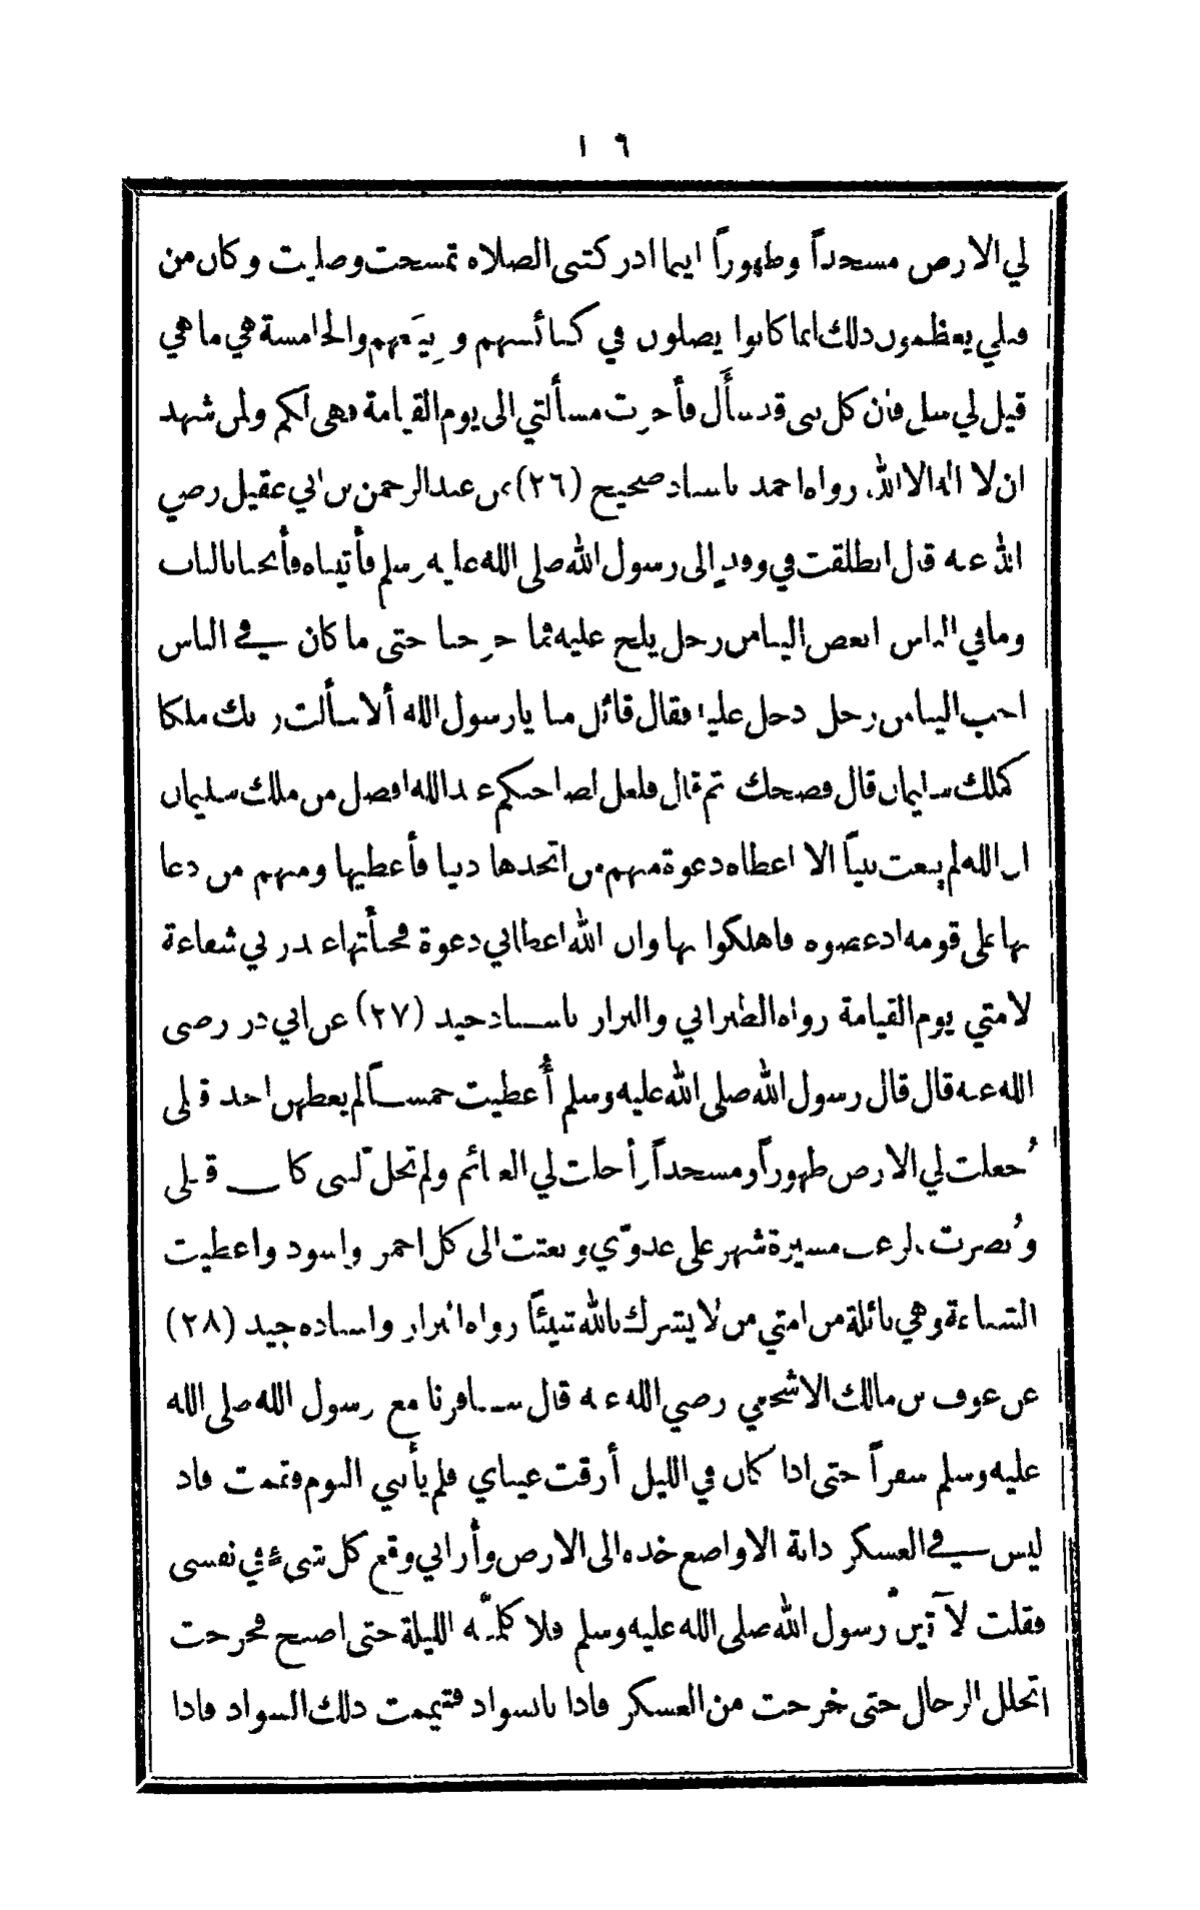 ١٦
لي الارض مسجداً وطهوراً ايما ادركتني الصلاه تمسحت وصليت وكان من
قبلي يعظمون ذلك انما كانوا يصلون في كنائسهم وبِيَعهم والخامسة هي ما هي
قيل لي سل فان كل نبي قد سأل فأخرت مسألتي الى يوم القيامة فهي لكم ولمن شهد
ان لا اله الا الله. رواه احمد باسناد صحيح (٢٦) عن عبد الرحمن بن ابي عقيل رضي
الله عنه قال انطلقت في وفدٍ الى رسول الله صلى الله عليه وسلم فأتيناه فأنخنا بالباب
وما في الناس ابغض الينا من رجل يلج عليه فما خرجنا حتى ما كان في الناس
احب الينا من رجل دخل عليه فقال قائل منا يا رسول الله ألا سألت ربك ملكا
كملك سليمان قال فضحك ثم قال فلعل لصاحبكم عند الله افضل من ملك سليمان
ان الله لم يبعث نبياً الا اعطاه دعوة منهم من اتخذها دنيا فأعطيها ومنهم من دعا
بها على قومه اذ عصوه فاهلكوا بها وان الله اعطاني دعوة فخبأتها عند ربي شفاعة
لامتي يوم القيامة رواه الطبراني والبزار باسناد جيد (٢٧) عن ابي ذر رضى
الله عنه قال قال رسول الله صلى الله عليه وسلم أُعطيت خمساً لم يعطهن احد قبلى
جُعلت لي الارض طهوراً ومسجداً وأحلت لي الغنائم ولم تحل لنبى كان قبلى
ونُصرت بالرعب مسيرة شهر على عدوّي وبعثت الى كل احمر واسود واعطيت
الشفاعة وهي نائلة من امتي من لا يشرك بالله شيئاً رواه البزار واسناده جيد (٢٨)
عن عوف بن مالك الاشجعي رضي الله عنه قال سافرنا مع رسول الله صلى الله
عليه وسلم سفراً حتى اذا كان في الليل أرقت عيناي فلم يأتني النوم فقمت فاذ
ليس في العسكر دابة الا واضع خده الى الارض وأرابي وقع كل شيء في نفسى
فقلت لآتينّ رسول الله صلى الله عليه وسلم فلا كلمنّه الليلة حتى اصبح فخرجت
اتخلل الرحال حتى خرجت من العسكر فاذا بالسواد فتيممت ذلك السواد فاذا